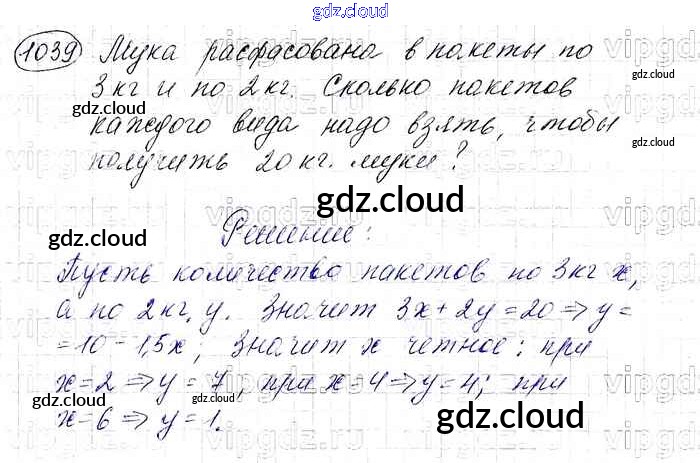 gdz.cloud
1039 Мука расфасована в пакеты по
3 кг и по 2 кг. Сколько пакетов
каждого вида надо взять, чтобы
получить 20 кг. муки?
Решение:
Пусть количество пакетов по 3 кг x,
а по 2 кг, y. Значит 3x + 2y = 20 ⇒ y =
= 10 - 1,5x; Значит x четное: при
x = 2 ⇒ y = 7, при x = 4 ⇒ y = 4; при
x = 6 ⇒ y = 1.
gdz.cloud
gdz.cloud
gdz.cloud
gdz.cloud
gdz.cloud
gdz.cloud
gdz.cloud
gdz.cloud